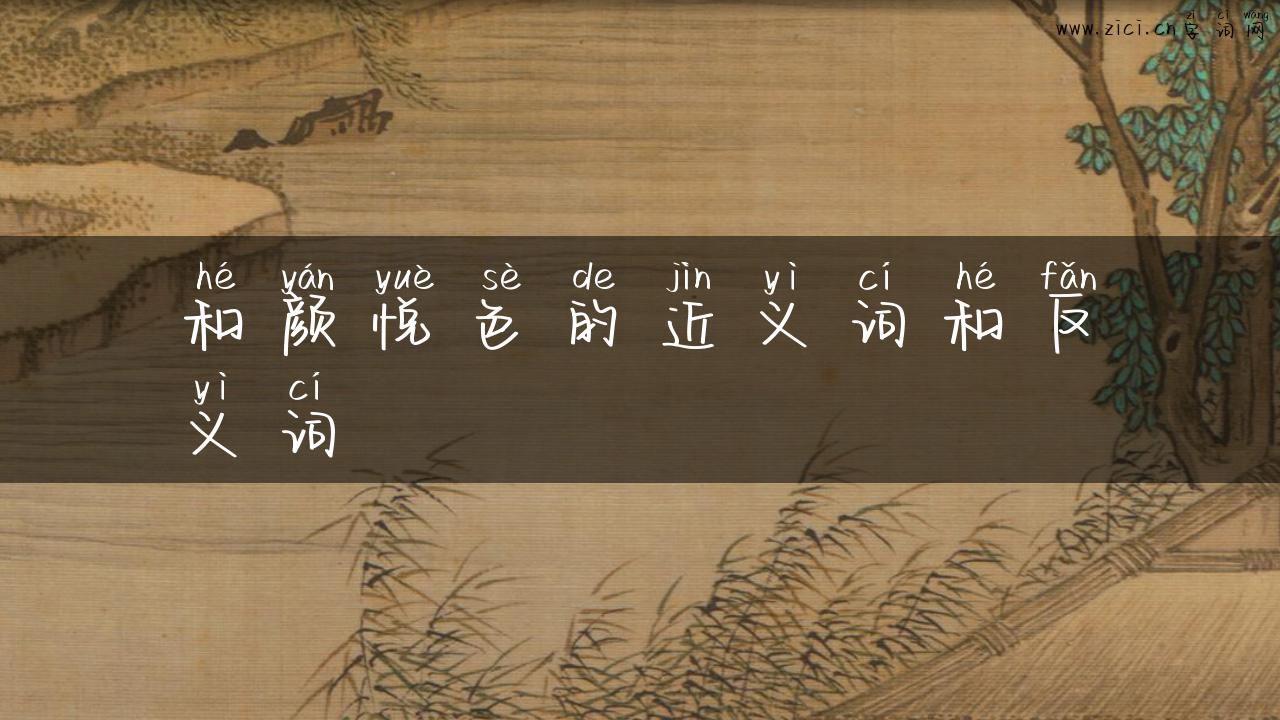 zì cí wǎng
www.zici.cn字词网
hé yán yuè sè de jìn yì cí hé fǎn
和颜悦色的近义词和反
yì cí
义词